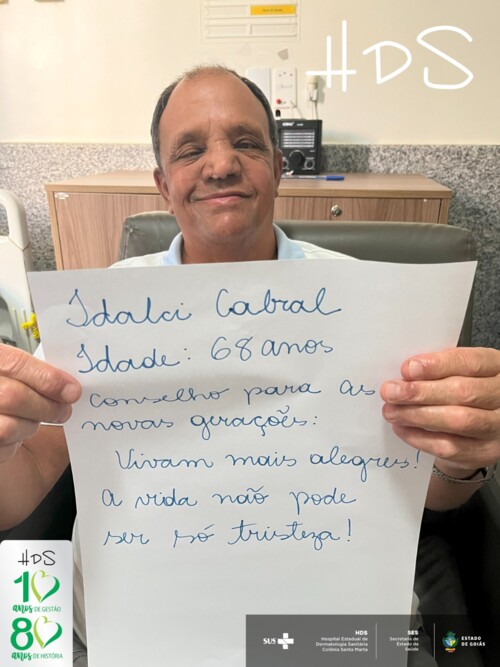 HDS
Idalci Cabral
Idade: 68 anos
conselho para as
novas gerações:
Vivam mais alegres!
A vida não pode
ser só tristeza!
HDS
10
anos DE GESTÃO
80
anos DE HISTÓRIA
SUS
HDS
Hospital Estadual de
Dermatologia Sanitária
Colônia Santa Marta
SES
Secretaria
de Estado da
Saúde
ESTADO
DE GOIÁS